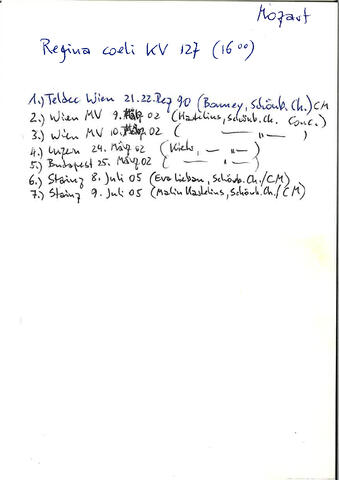 Mozart
Regina coeli KV 127 (16 00)
1.) Teldec Wien 21. 22. Dez 90 (Bonney, Schönb. Ch.) CM
2.) Wien MV 9. März 02 (Hartelius, Schönb. Ch. Conc.)
3.) Wien MV 10. März 02 ( —— " —— )
4.) Luzern 24. März 02 ( — " — )
5.) Budapest 25. März 02 ( — " — )
6.) Stainz 8. Juli 05 (Eva Liebau, Schönb. Ch./CM)
7.) Stainz 9. Juli 05 (Malin Hartelius, Schönb. Ch./CM)